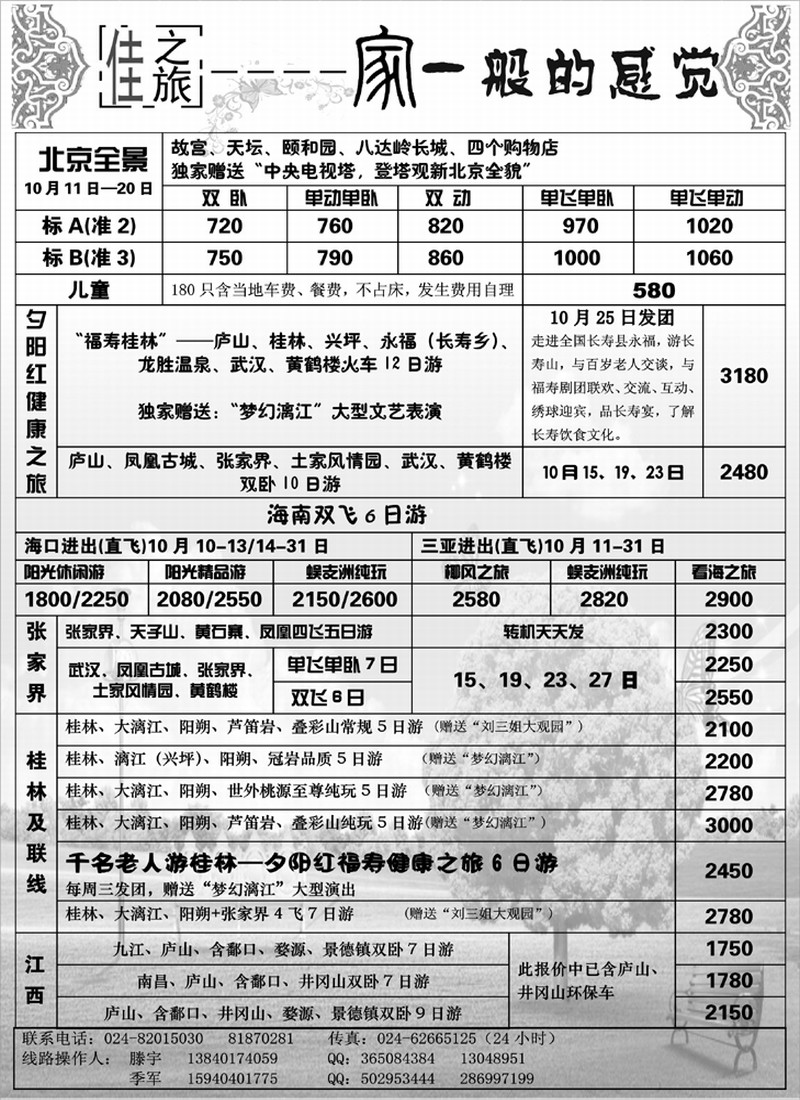 佳之旅----家一般的感觉
北京全景
10月11日—20日
故宫、天坛、颐和园、八达岭长城、四个购物店
独家赠送“中央电视塔，登塔观新北京全貌”
双 卧 单动单卧 双 动 单飞单卧 单飞单动
标A(准2) 720 760 820 970 1020
标B(准3) 750 790 860 1000 1060
儿童 180只含当地车费、餐费，不占床，发生费用自理 580
夕阳红健康之旅
“福寿桂林”——庐山、桂林、兴坪、永福（长寿乡）、
龙胜温泉、武汉、黄鹤楼火车12日游
独家赠送：“梦幻漓江”大型文艺表演
10月25日发团
走进全国长寿县永福，游长
寿山，与百岁老人交谈，与
福寿剧团联欢、交流、互动、
绣球迎宾，品长寿宴，了解
长寿饮食文化。
3180
庐山、凤凰古城、张家界、土家风情园、武汉、黄鹤楼
双卧10日游
10月15、19、23日
2480
海南双飞6日游
海口进出(直飞)10月10-13/14-31日 三亚进出(直飞)10月11-31日
阳光休闲游 阳光精品游 蜈支洲纯玩 椰风之旅 蜈支洲纯玩 看海之旅
1800/2250 2080/2550 2150/2600 2580 2820 2900
张家界
张家界、天子山、黄石寨、凤凰四飞五日游 转机天天发 2300
武汉、凤凰古城、张家界、
土家风情园、黄鹤楼
单飞单卧7日 2250
双飞6日 2550
15、19、23、27日
桂林及联线
桂林、大漓江、阳朔、芦笛岩、叠彩山常规5日游（赠送“刘三姐大观园”） 2100
桂林、漓江（兴坪）、阳朔、冠岩品质5日游 （赠送“梦幻漓江”） 2200
桂林、大漓江、阳朔、世外桃源至尊纯玩5日游 （赠送“梦幻漓江”） 2780
桂林、大漓江、阳朔、芦笛岩、叠彩山纯玩5日游(赠送“梦幻漓江”） 3000
千名老人游桂林—夕阳红福寿健康之旅6日游
每周三发团，赠送“梦幻漓江”大型演出
2450
桂林、大漓江、阳朔+张家界4飞7日游 （赠送“刘三姐大观园”） 2780
江西
九江、庐山、含鄱口、婺源、景德镇双卧7日游 1750
南昌、庐山、含鄱口、井冈山双卧7日游 1780
庐山、含鄱口、井冈山、婺源、景德镇双卧9日游 2150
此报价中已含庐山、
井冈山环保车
联系电话：024-82015030 81870281 传真：024-62665125（24小时）
线路操作人： 滕宇 13840174059 QQ：365084384 13048951
季军 15940401775 QQ：502953444 286997199